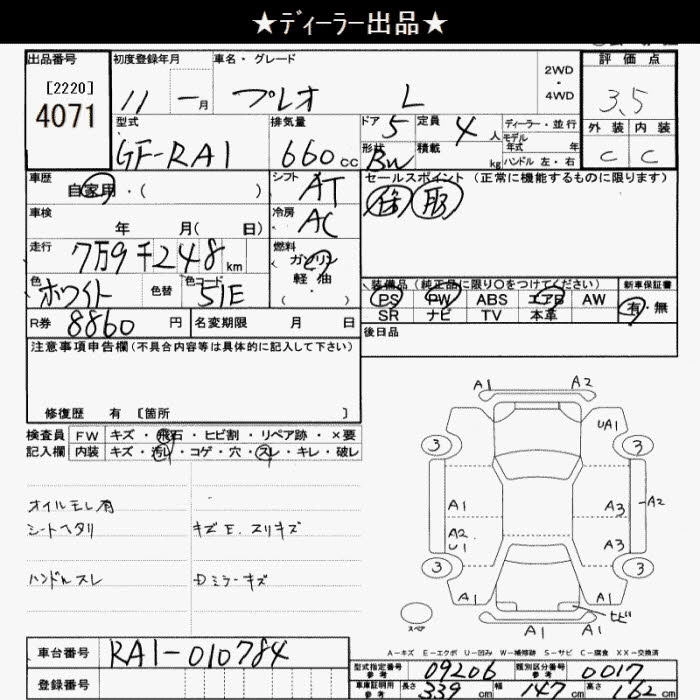 ★ディーラー出品★
出品番号 初度登録年月 車名・グレード 2WD・4WD 評価点
[2220] 4071 11 一月 プレオ L 3.5
型式 排気量 ドア 5 定員 4人 ディーラー・並行 外装 内装
GF-RA1 660cc 形状 BW 積載 kg モデル年式 年 ハンドル 左・右 C C
車歴 自家用・( ) シフト AT セールスポイント(正常に機能するものに限ります)
車検 年 月( 日) 冷房 AC
走行 7万9千248km 燃料 ガソリン 軽油 ( ・ )
色 ホワイト 色替 色コード 51E 装備品(純正品に限り○をつけてください) 新車保証書
PS PW ABS エアB AW 有・無
SR ナビ TV 本革
R券 8860円 名変期限 月 日 後日品
注意事項申告欄(不具合内容等は具体的に記入して下さい)
修復歴 有 [箇所 ]
検査員記入欄 FW キズ・飛石・ヒビ割・リペア跡・×要
内装 キズ・汚れ・コゲ・穴・スレ・キレ・破レ
オイルモレ有
シートヘタリ キズE.スリキズ
ハンドルスレ Dミラーキズ
A1 A2
UA1
3 3
A1 A3 A2
A2 U1 A3
3 3
A1 A1 ヒビ
スペア A1 A1
A-キズ E-エクボ U-凹み W-補修跡 S-サビ C-腐食 XX-交換済
車台番号 RA1-010784
登録番号
型式指定番号 参考 09206 類別区分番号 参考 0017
車庫証明用 参考 長さ 339cm 幅 147cm 高さ 62cm